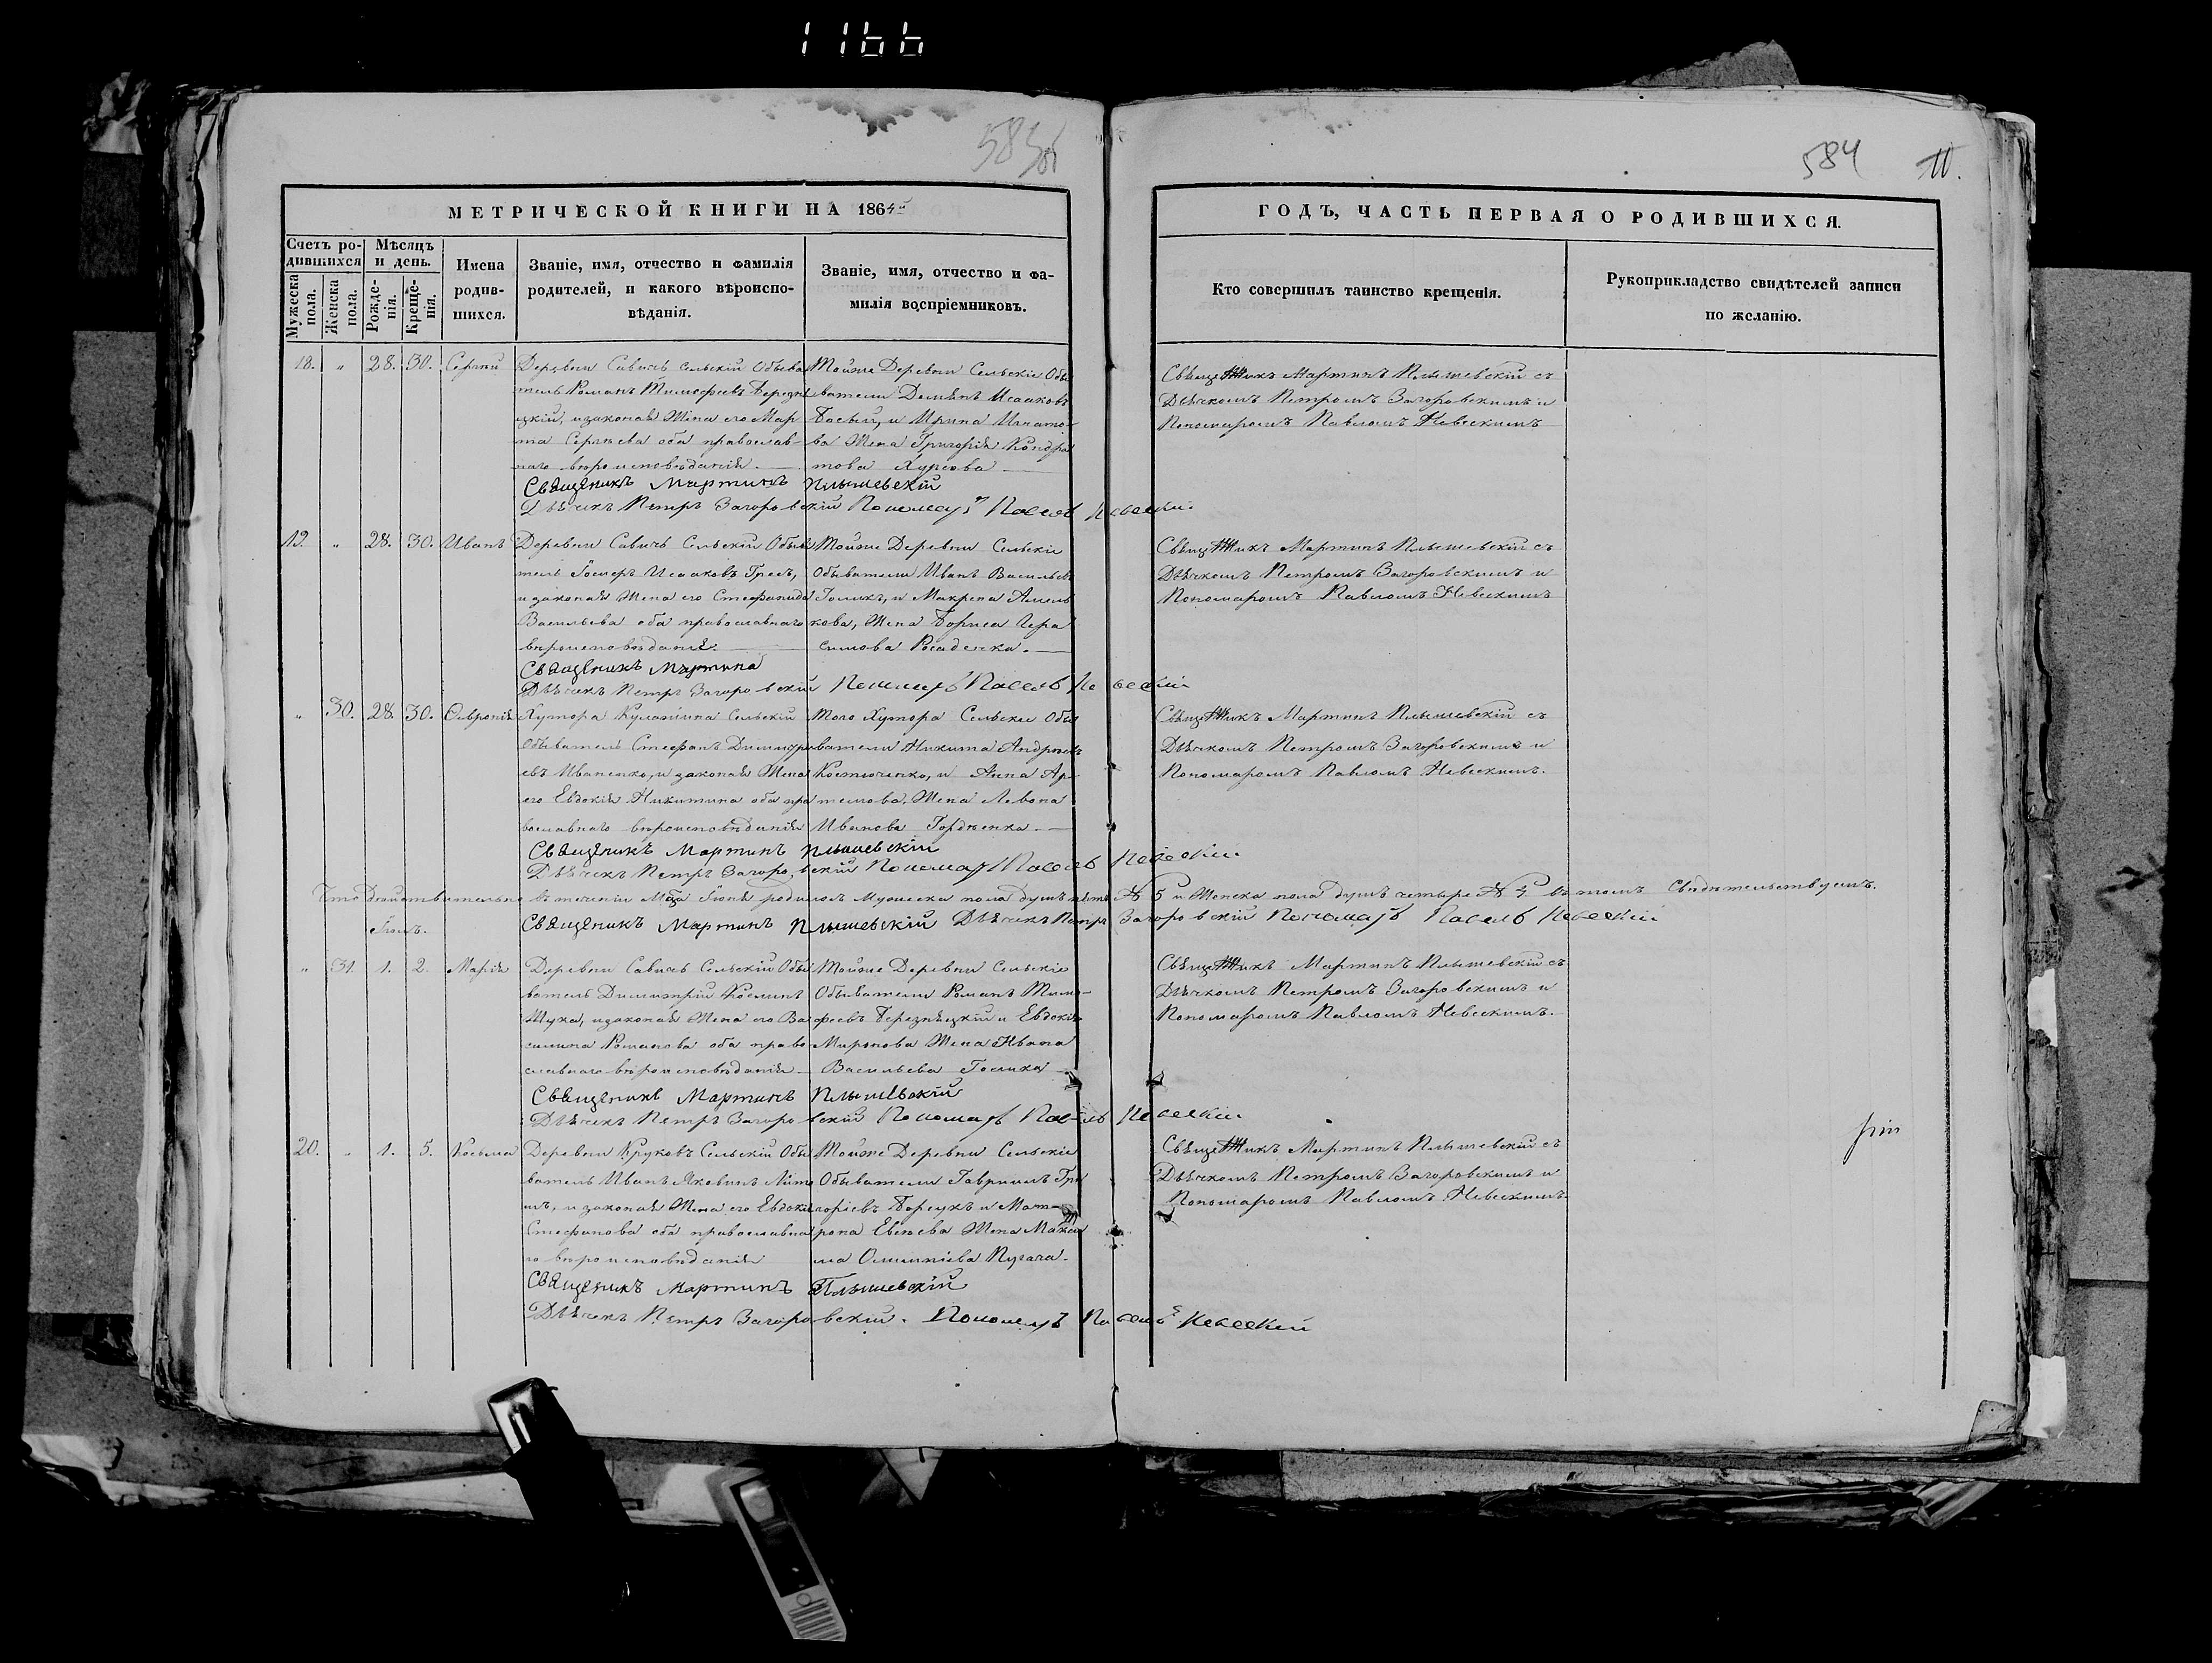 1166
583об
584 11.
МЕТРИЧЕСКОЙ КНИГИ НА 1864й
ГОДЪ, ЧАСТЬ ПЕРВАЯ О РОДИВШИХСЯ.
Счетъ родившихся
Мужеска пола.
Женска пола.
Мѣсяцъ и день.
Рожде-
нія.
Креще-
нія.
Имена
родив-
шихся.
Званіе, имя, отчество и фамилія
родителей, и какого вѣроиспо-
вѣданія.
Званіе, имя, отчество и фа-
милія воспріемниковъ.
Кто совершилъ таинство крещенія.
Рукоприкладство свидѣтелей записи
по желанію.
18. " 28. 30. Сергій
Деревни Савичъ Сельскій Обыва
тель Романъ Тимофеевъ Березне
цкій, и законая Жена его Мар
та Сергѣева оба православ-
наго вѣроисповѣданія.
Тойже Деревни Сельскіе Обы
ватели Демянъ Исааковъ
и Ирина Игнато-
ва Жена Григорія Кондра
това
Священикъ Мартинъ Плышевскій съ
Дьячкомъ Петромъ Загоровскимъ и
Пономаромъ Павломъ Невескимъ
Священикъ Мартинъ Плышевскій
Дьячекъ Петръ Загоровскій Пономарь Павелъ Невескій
19. " 28. 30. Иванъ
Деревни Савичъ Сельскій Обыва
тель Исааковъ
и законая Жена его Стефанида
Васильева оба православнаго
вѣроисповѣданія.
Тойже Деревни Сельскіе
Обыватели Иванъ Васильевъ
Голикъ, и Макрена Амель
кова, Жена Бориса Гера
симова
Священикъ Мартинъ Плышевскій съ
Дьячкомъ Петромъ Загоровскимъ и
Пономаромъ Павломъ Невескимъ
Священикъ Мартинъ
Дьячекъ Петръ Загоровскій Пономарь Павелъ Невескій
" 30. 28. 30. Февронія
Хутора Сельскій
Обыватель Стефанъ Димитрі
евъ Иваненко, и законая Жена
его Евдокія Никитина оба пра
вославнаго вѣроисповѣданія
Того Хутора Сельскіе Обы
ватели Никита Андреевъ
Костюченко, и Анна Ар-
темова, Жена Левона
Иванова Гордѣенка
Священикъ Мартинъ Плышевскій съ
Дьячкомъ Петромъ Загоровскимъ и
Пономаромъ Павломъ Невескимъ.
Священикъ Мартинъ Плышевскій
Дьячекъ Петръ Загоровскій Пономарь Павелъ Невескій
Что дѣйствительно въ теченіи Мца Іюнѣ родилось Мужеска пола душъ пять № 5 и Женска пола душъ четыре № 4. въ томъ Свидѣтельствуемъ.
Священикъ Мартинъ Плышевскій Дьячекъ Петръ Загоровскій Пономарь Павелъ Невескій
Іюль.
" 31. 1. 2. Марія
Деревни Савичъ Сельскій Обы
ватель Димитрій Косминъ
Жука, и законая Жена его Ва
силина Романова оба право
славнаго вѣроисповѣданія
Тойже Деревни Сельскіе
Обыватели Романъ Тимо-
феевъ Березнѣцкій и Евдокія
Миронова Жена Ивана
Васильева Голика
Священикъ Мартинъ Плышевскій съ
Дьячкомъ Петромъ Загоровскимъ и
Пономаромъ Павломъ Невескимъ.
Священикъ Мартинъ Плышевскій
Дьячекъ Петръ Загоровскій Пономарь Павелъ Невескій
20. " 1. 5. Косьма
Деревни Круковъ Сельскій Обы
ватель Иванъ Яковинъ
и законая Жена его Евдокія
Стефанова оба православна
го вѣроисповѣданія
Тойже Деревни Сельскіе
Обыватели Гавриилъ Гри
горіевъ Борсукъ и Мат-
рона Евсѣева Жена Макси
ма Олимпіева Пугача.
Священикъ Мартинъ Плышевскій съ
Дьячкомъ Петромъ Загоровскимъ и
Пономаромъ Павломъ Невескимъ
Священикъ Мартинъ Плышевскій
Дьячекъ Петръ Загоровскій. Пономарь Павелъ Невескій